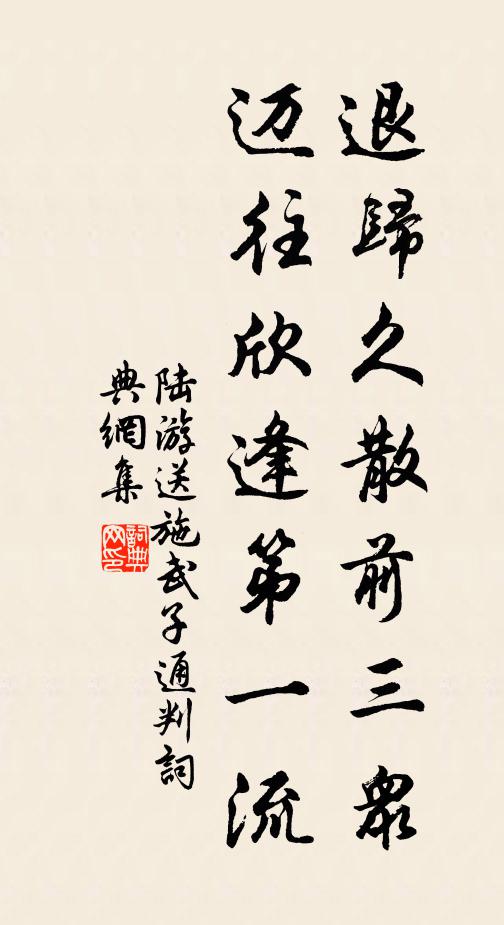 退歸久散前三眾
迈往欣逢第一流
陆游送施武子通判詞
典網集
詞典網印